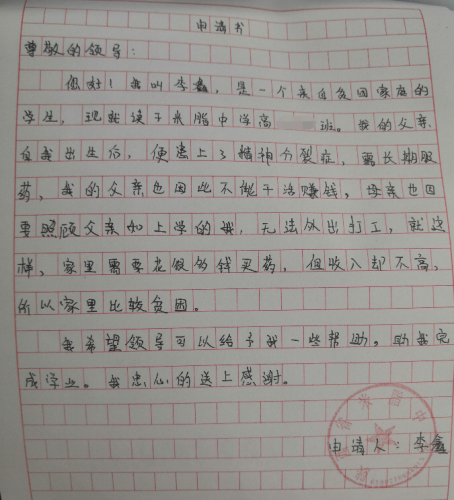 申请书
尊敬的领导：
您好！我叫李鑫，是一个来自贫困家庭的
学生，现就读于米脂中学高 班。我的父亲
自我出生后，便患上了精神分裂症，需长期服
药，我的父亲也因此不能干活赚钱，母亲也因
要照顾父亲和上学的我，无法外出打工，就这
样，家里需要花很多钱买药，但收入却不高，
所以家里比较贫困。
我希望领导可以给予我一些帮助。助我完
成学业。我忠心的送上感谢。
申请人：李鑫